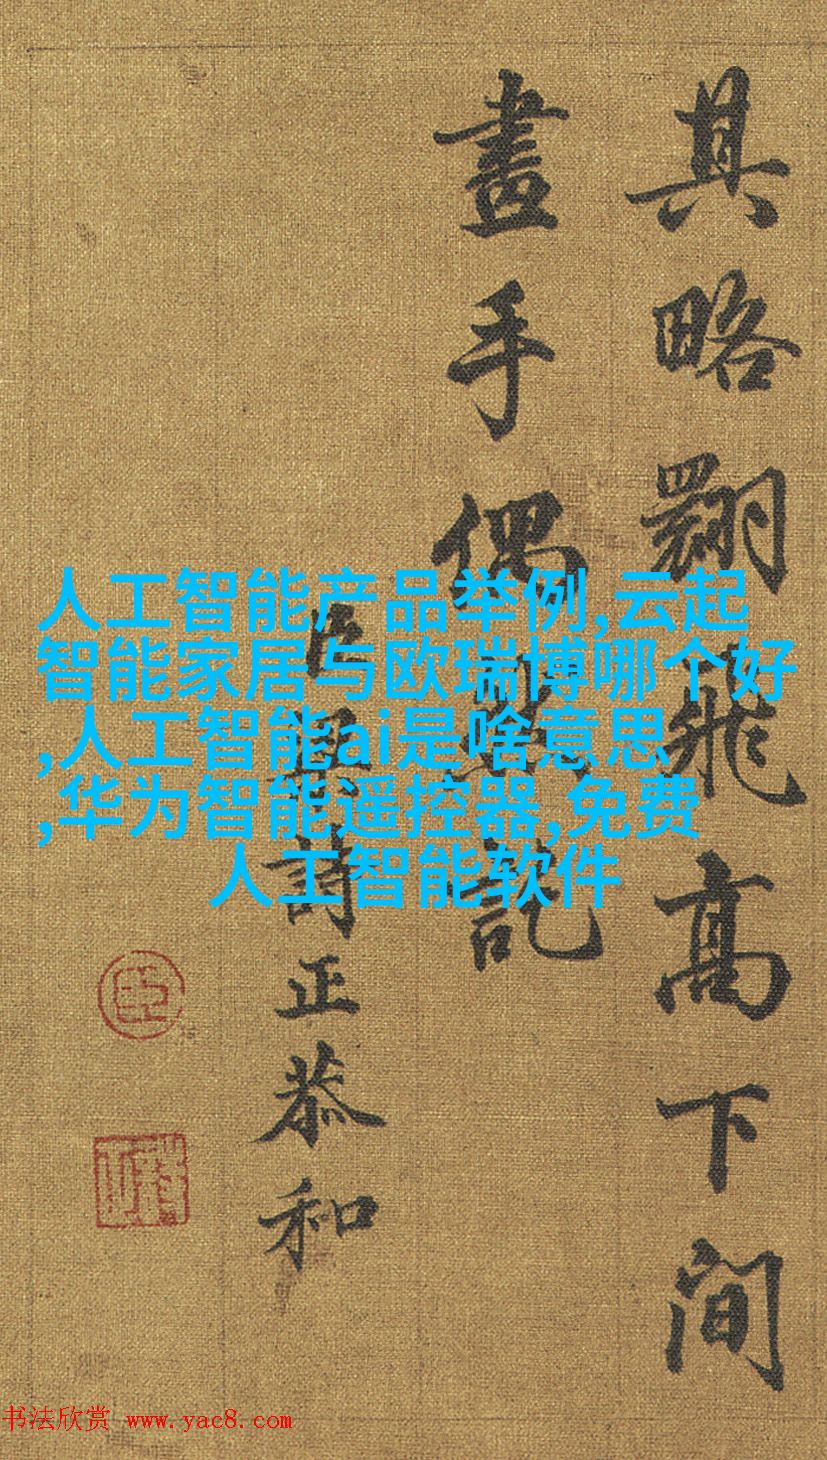 其略翾飛高下間
畫手偶訖
臣梁詩正恭和
臣
人工智能产品举例,云起
智能家居与欧瑞博哪个好
,人工智能ai是啥意思
,华为智能遥控器,免费
人工智能软件
书法欣赏 www.yac8.com